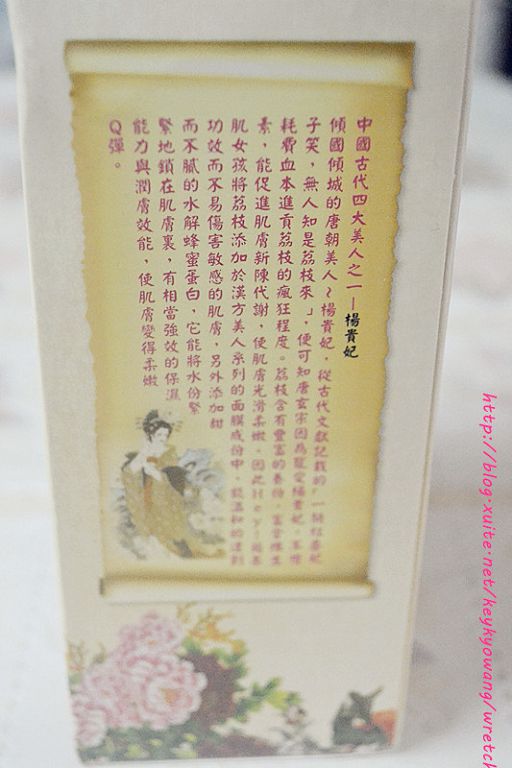 中國古代四大美人之一—楊貴妃
傾國傾城的唐朝美人~楊貴妃，從古代文獻記載的「一騎紅塵妃
子笑，無人知是荔枝來」，便可知唐玄宗因為寵愛楊貴妃，不惜
耗費血本進貢荔枝的瘋狂程度。荔枝含有豐富的養份，富含維生
素，能促進肌膚新陳代謝，使肌膚光滑柔嫩。因此Hey!
肌女孩將荔枝添加於漢方美人系列的面膜成份中，能溫和的達到
功效而不易傷害敏感的肌膚，另外添加甜
而不膩的水解蜂蜜蛋白，它能將水份緊
緊地鎖在肌膚裏，有相當強效的保濕
能力與潤膚效能，使肌膚變得柔嫩
Q彈。
http://blog.xuite.net/keykyowang/wretch